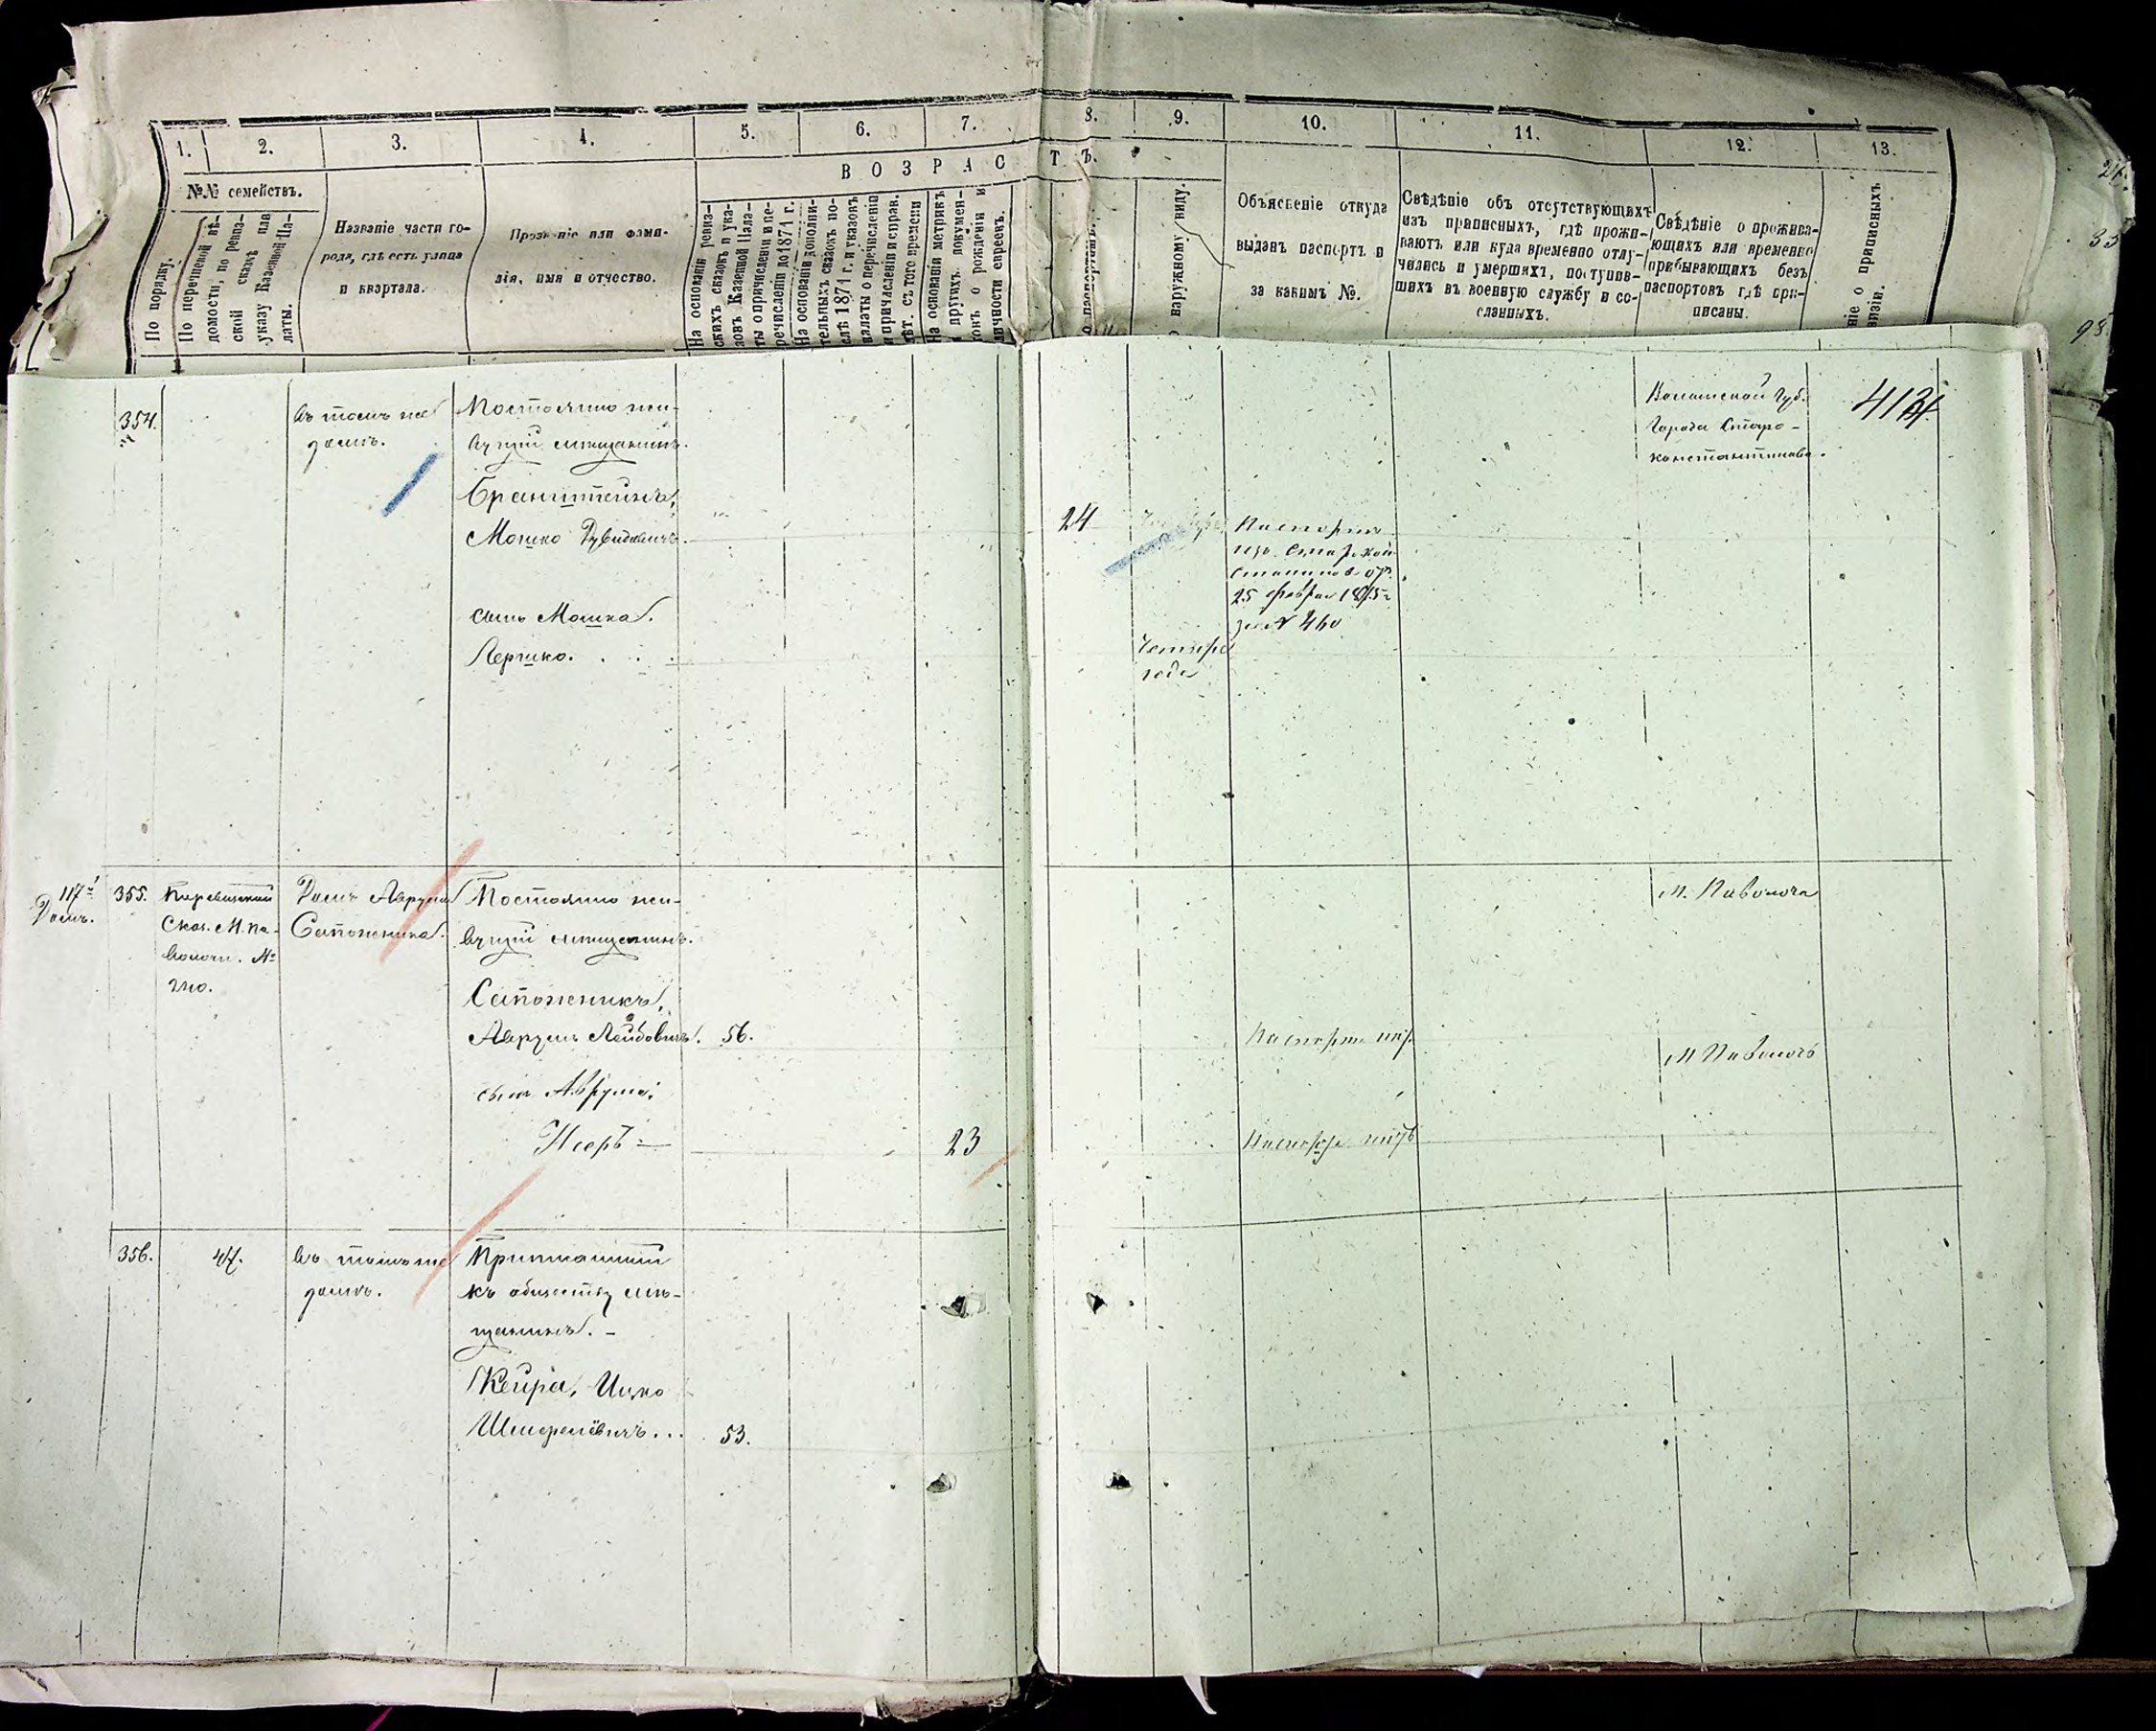 1. 2. 3. 4. 5. 6. 7. 8. 9. 10. 11. 12. 13.
В О З Р А С Т Ъ.
№№ семействъ.
По порядку.
По переписной вѣ-
домости, по ревиз-
ской сказкѣ или
указу Казенной Па-
латы.
Названіе части го-
рода, гдѣ есть улица
и квартала.
Прозваніе или фами-
лія, имя и отчество.
На основаніи ревиз-
скихъ сказокъ и ука-
зовъ Казенной Пала-
ты о причисленіи и пе-
речисленіи до 1874 г.
На основаніи дополни-
тельныхъ сказокъ по-
слѣ 1874 г. и указовъ
палаты о перечисленіи
и причисленіи и справ.
лѣт. съ того времени
На основаніи метрикъ
и другихъ докумен-
товъ о рожденіи и
личности евреевъ.
о паспортамъ.
наружному виду.
Объясненіе откуда
выданъ паспортъ и
за какимъ №.
Свѣдѣніе объ отсутствующихъ
изъ приписныхъ, гдѣ прожи-
ваютъ или куда временно отлу-
чились и умершихъ, поступив-
шихъ въ военную службу и со-
сланныхъ.
Свѣдѣніе о прожива-
ющихъ или временно
прибывающихъ безъ
паспортовъ гдѣ при-
писаны.
ніе о приписныхъ
354.
въ томъ же
домѣ.
Постоянно жи-
вущій мѣщанинъ.
Бранштейнъ,
Мошко Дувидовичъ.
24
Паспортъ
изъ Старокон
25 феврал 1875 г
за № 460
Волынской Губ.
Города Старо-
константинова.
сынъ Мошка.
Лершко.
Четыре
года
117й
Домъ.
355.
Сказ. М. Па-
волочи. №
210.
Домъ Аврума
Сапожника.
Постоянно жи-
вущій мѣщанинъ.
Сапожникъ,
Аврумъ Лейбовичъ. 56.
м. Паволочи
М Паволочь
сынъ Аврума:
23
356.
47.
въ томъ же
домѣ.
къ обществу мѣ-
щанинъ.
Кейра, Ицко
53.